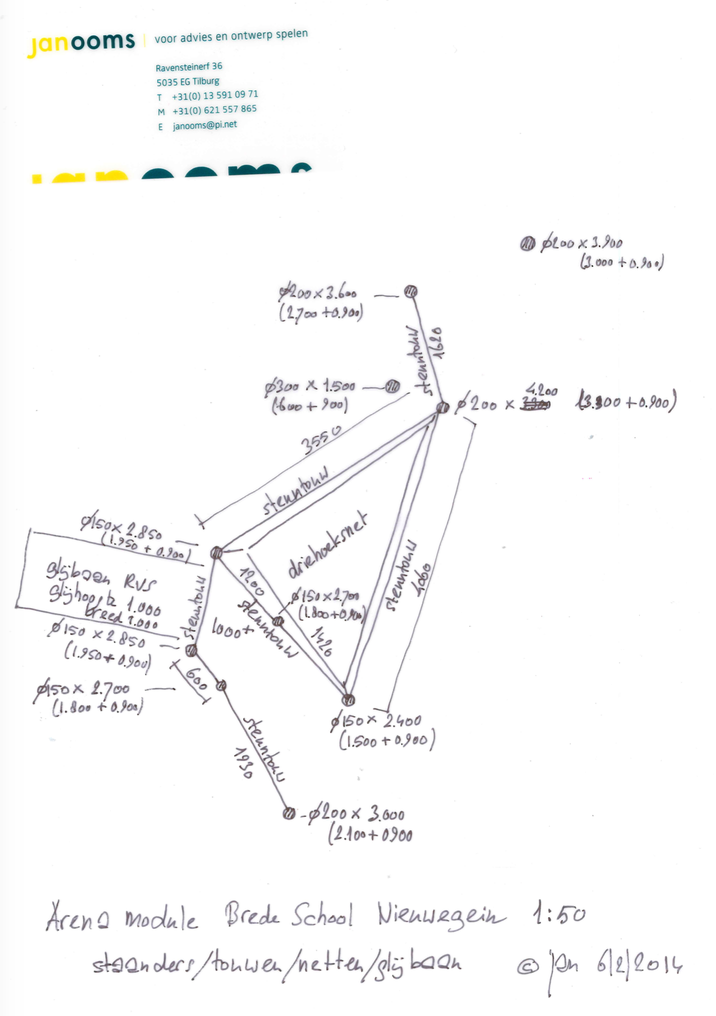 janooms voor advies en ontwerp spelen
Ravensteinerf 36
5035 EG Tilburg
T +31(0) 13 591 09 71
M +31(0) 621 557 865
E janooms@pi.net
janooms
ø200 x 3.900
(3.000 + 0.900)
ø200 x 3.600
(2.700 + 0.900)
steuntouw
1620
ø300 x 1.500
(600 + 900)
ø200 x 4.200 (3.300 + 0.900)
3550
steuntouw
driehoeksnet
steuntouw
4060
ø150 x 2.850
(1.950 + 0.900)
glijbaan RVS
glijhoogte 1.000
breed 1.000
steuntouw
1200
steuntouw
1000+
ø150 x 2.700
(1.800 + 0.900)
1420
ø150 x 2.850
(1.950 + 0.900)
600
ø150 x 2.700
(1.800 + 0.900)
ø150 x 2.400
(1.500 + 0.900)
steuntouw
1930
ø200 x 3.000
(2.100 + 0900
Arena module Brede School Nieuwegein 1:50
staanders/touwen/netten/glijbaan © jan 6/2/2014